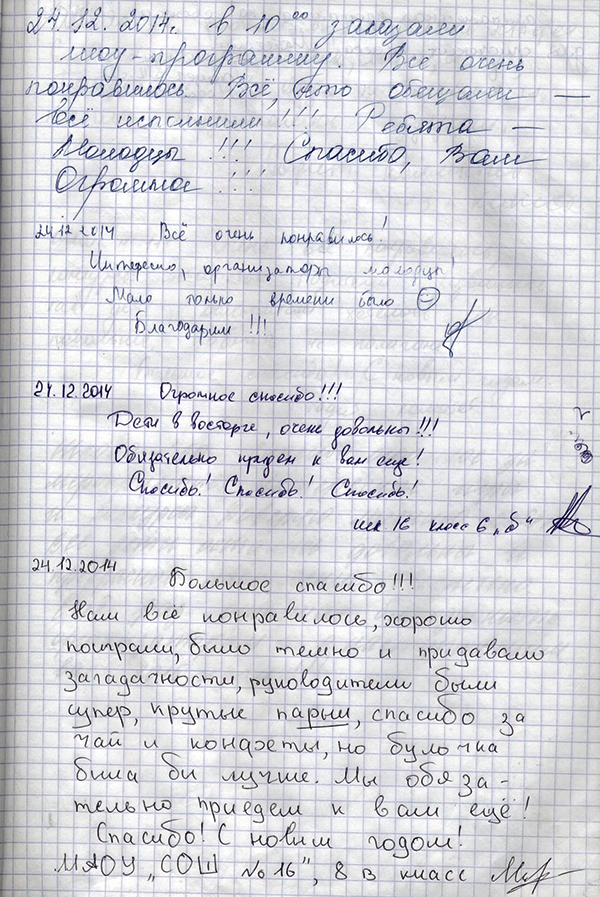 24.12.2014г. в 10⁰⁰ заказали
шоу-программу. Всё очень
понравилось. Всё, что обещали —
всё исполнили!!! Ребята —
Молодцы!!! Спасибо, Вам
Огромное!!!
24.12.2014 Всё очень понравилось!
Интересно, организаторы молодцы!
Мало только времени было
Благодарим!!!
24.12.2014 Огромное спасибо!!!
Дети в восторге, очень довольны!!!
Обязательно придем к вам еще!
Спасибо! Спасибо! Спасибо!
шк 16 класс 6 „б"
24.12.2014
Большое спасибо!!!
Нам всё понравилось, хорошо
поиграли, было темно и придавало
загадачности, руководители были
супер, крутые парни, спасибо за
чай и конфеты, но булочка
была бы лучше. Мы обяза-
тельно приедем к вам ещё!
Спасибо! С новым годом!
МАОУ „СОШ №16", 8 в класс